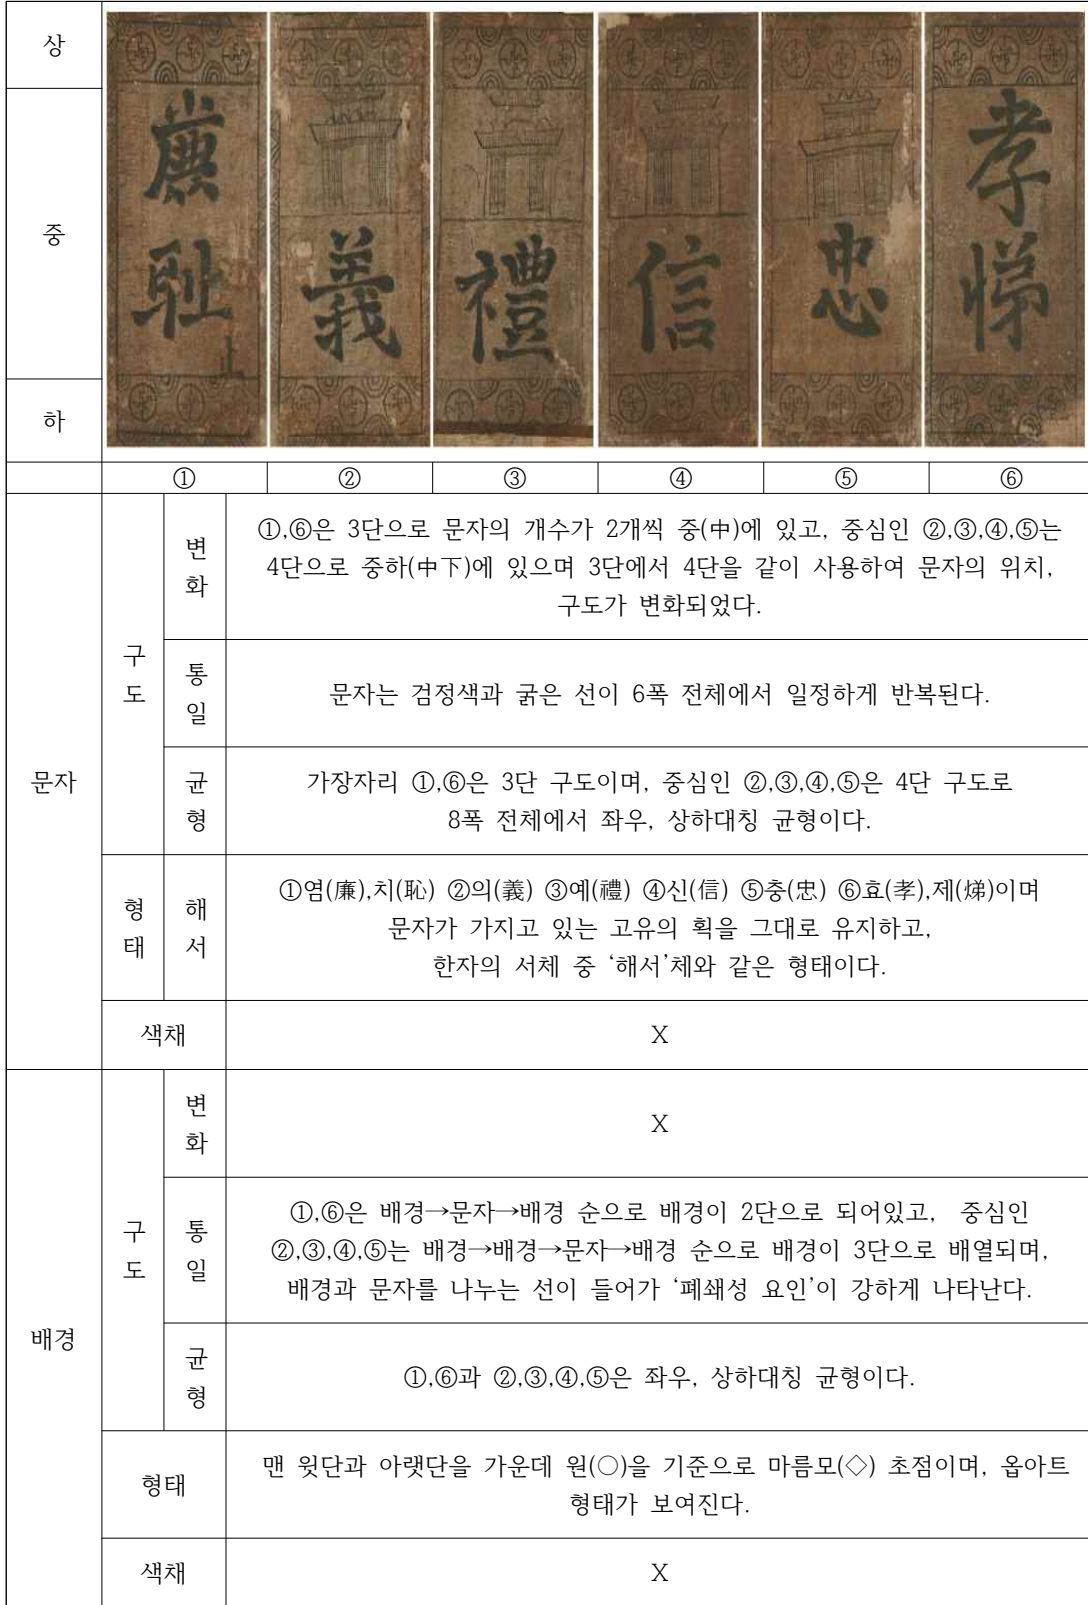 상
중
하
廉
耻
義
禮
信
忠
孝
悌
① ② ③ ④ ⑤ ⑥
문자
구도
변화
①,⑥은 3단으로 문자의 개수가 2개씩 중(中)에 있고, 중심인 ②,③,④,⑤는
4단으로 중하(中下)에 있으며 3단에서 4단을 같이 사용하여 문자의 위치,
구도가 변화되었다.
통일
문자는 검정색과 굵은 선이 6폭 전체에서 일정하게 반복된다.
균형
가장자리 ①,⑥은 3단 구도이며, 중심인 ②,③,④,⑤은 4단 구도로
8폭 전체에서 좌우, 상하대칭 균형이다.
형태
해서
①염(廉),치(恥) ②의(義) ③예(禮) ④신(信) ⑤충(忠) ⑥효(孝),제(焍)이며
문자가 가지고 있는 고유의 획을 그대로 유지하고,
한자의 서체 중 ‘해서’체와 같은 형태이다.
색채
X
배경
구도
변화
X
통일
①,⑥은 배경→문자→배경 순으로 배경이 2단으로 되어있고, 중심인
②,③,④,⑤는 배경→배경→문자→배경 순으로 배경이 3단으로 배열되며,
배경과 문자를 나누는 선이 들어가 ‘폐쇄성 요인’이 강하게 나타난다.
균형
①,⑥과 ②,③,④,⑤은 좌우, 상하대칭 균형이다.
형태
맨 윗단과 아랫단을 가운데 원(○)을 기준으로 마름모(◇) 초점이며, 옵아트
형태가 보여진다.
색채
X